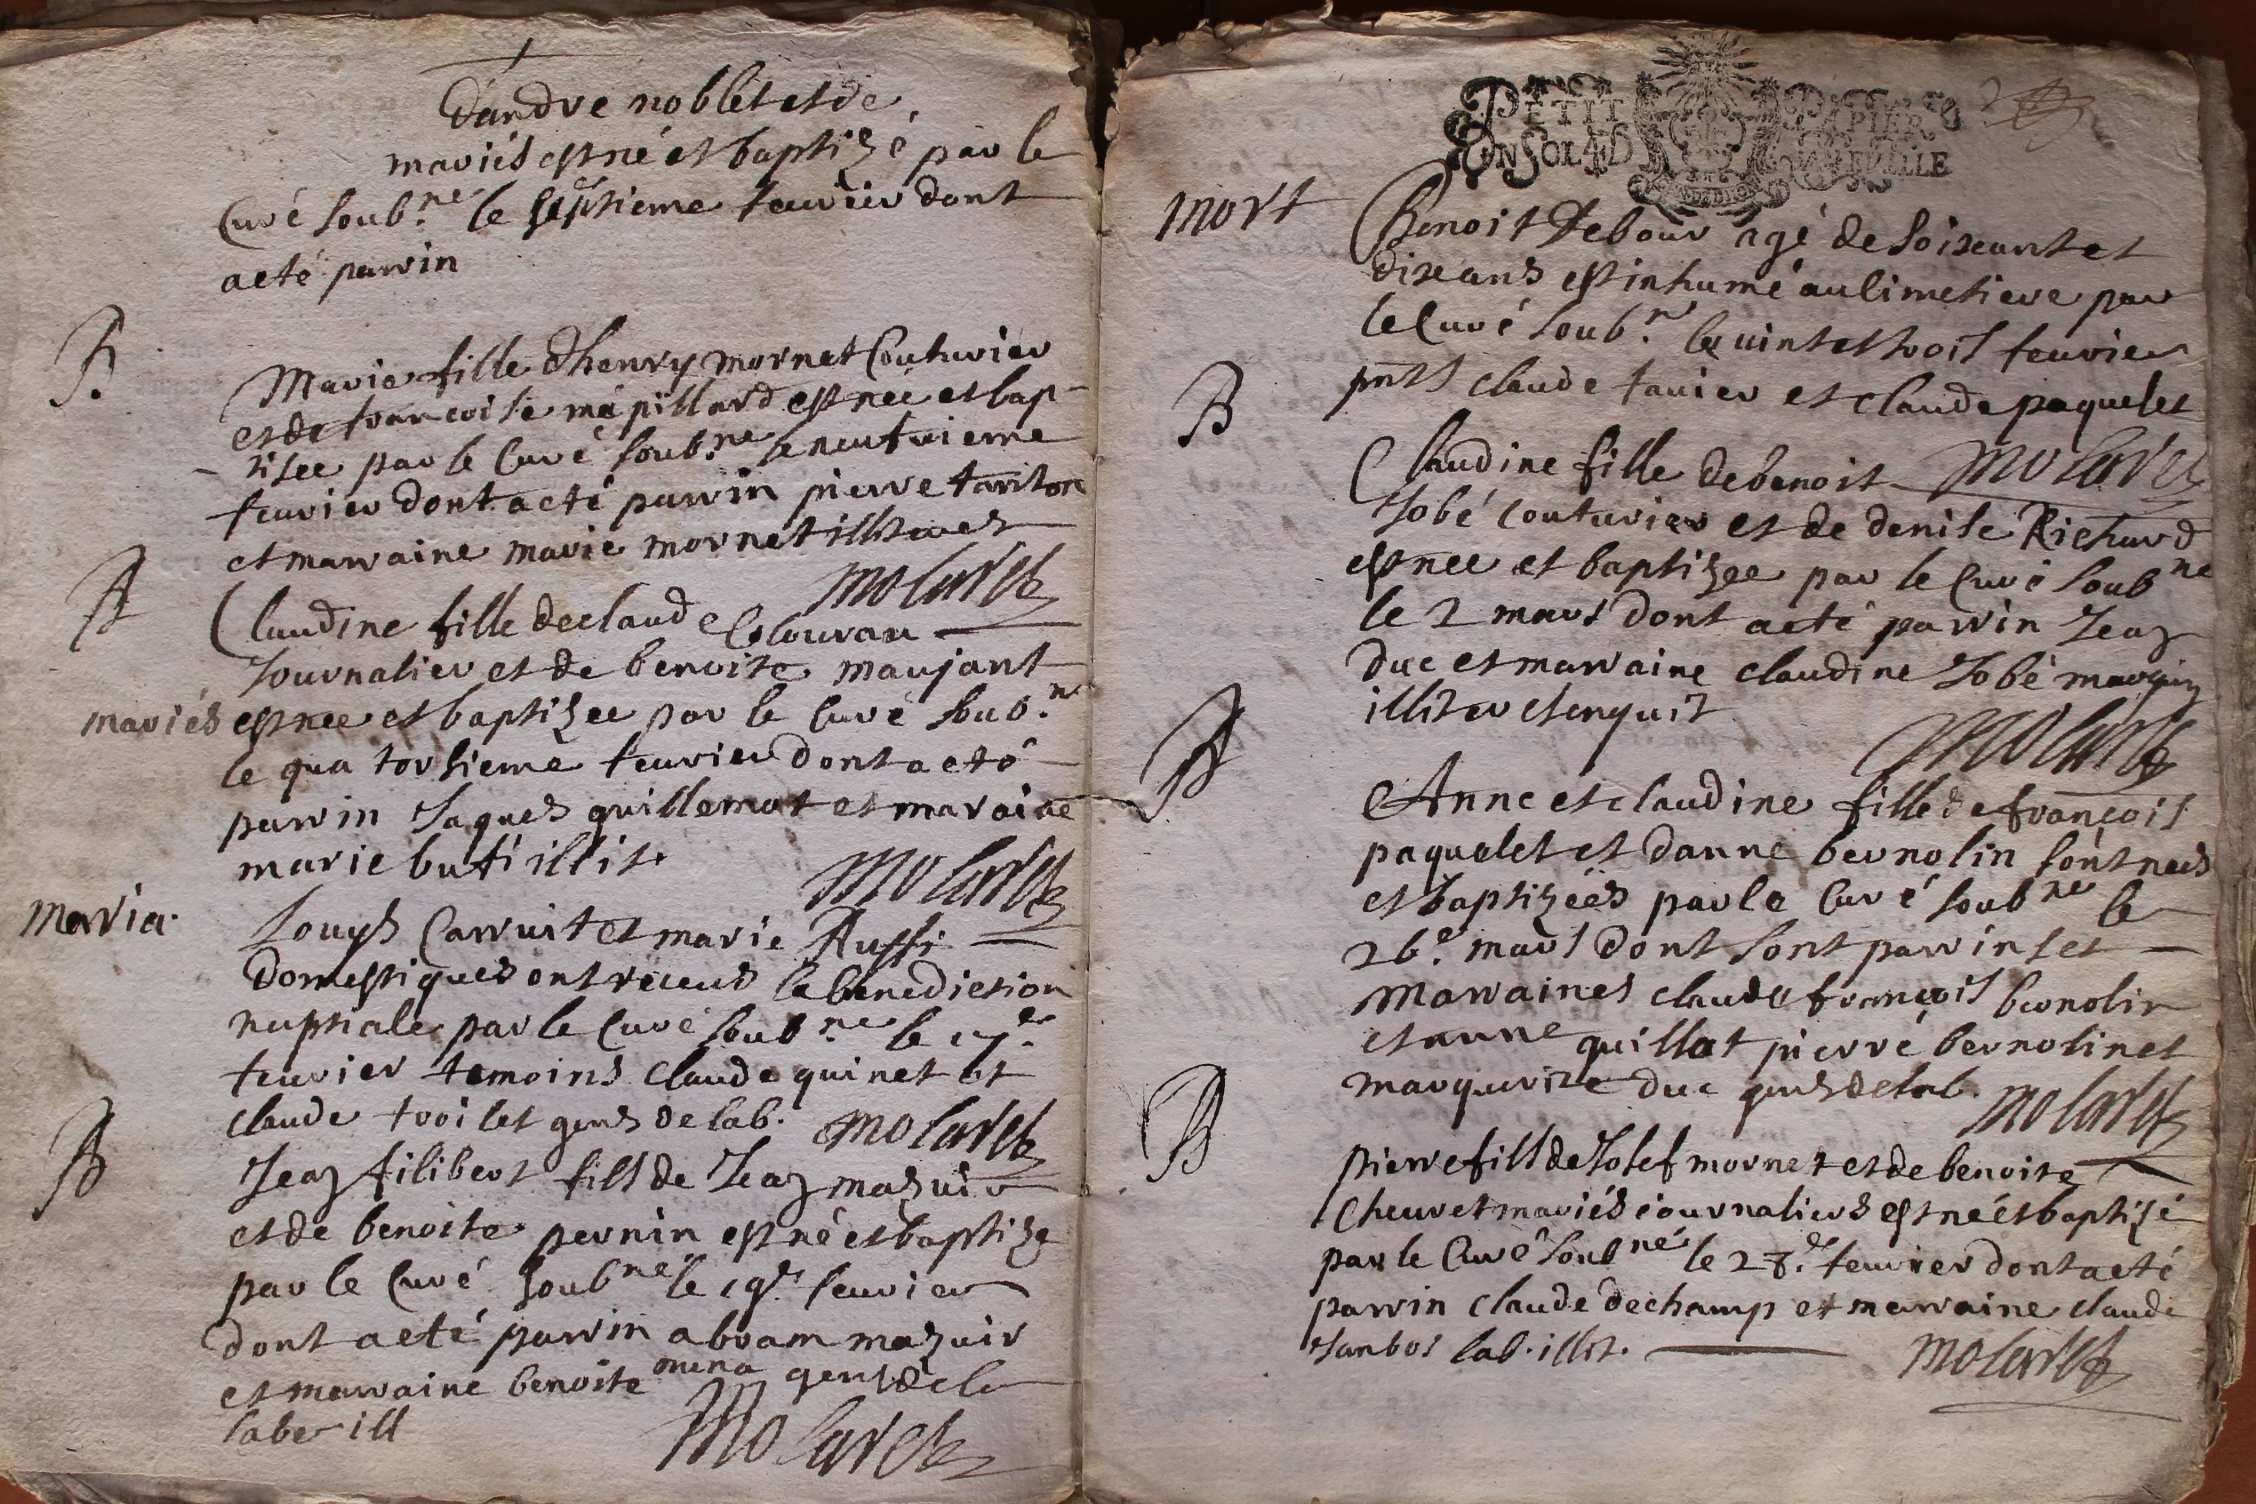 Dandre noblet et de
mariés est né et baptizé par le
Curé soub.né le septieme feuvrier dont
acte parrin
B.
Marie fille dhenry mornet Couturier
et de francoise mapillard est née et bap-
tisee par le Curé soub.né le neufvieme
feuvrier dont acté parrin pierre
et marraine marie mornet illiteres
Molaret
B
Claudine fille de claude
Journalier et de benoite maujant
mariés est nee et baptizee par le Curé soub.n
le quatorsieme feuvrier dont acté
parrin Jaques guillemot et maraine
marie buti illit.
Molaret
maria.
Louys Carruit et marie Aussi
domestiques ont receus la benediction
nuptiale par le Curé soub.né le 17e
feuvrier temoins claude quinet et
claude troilet gens de lab.
Molaret
B
Jean filibert fils de Jean mazuir
et de benoite pernin est né et baptizé
par le Curé soubné le 19e feuvrier
dont acté parrin abram mazuir
et marraine benoite gens de la
labe ill
Molaret
PETIT PAPIER
UN SOL 4 D LA FEUILLE
mort
Benoit Debour agé de soixant et
dix ans est inhumé au Cimetiere par
le Curé soub.n le vint et trois feuvrier
pnts claude tavier et claude paquelet
Molaret
B
Claudine fille de benoit
Jobé couturier et de denise Richard
est nee et baptizee par le Curé soubné
le 2 mars dont acté parrin Jean
duc et marraine claudine Jobé
illiter et enquis
Molaret
B
Anne et claudine fille de françois
paquelet et danne bernolin sont nees
et baptizées par le Curé soubné le
26.e mars dont sont parrins et
Marraines claude françois bernolin
et anne guillot pierre bernolin et
marguerite duc gens de lab.
Molaret
B
pierre fils de Josef mornet et de benoite
Cheuret mariés iournaliers est né et baptizé
par le Curé soubné le 27.e feuvrier dont acté
parrin claude dechamp et marraine claude
lab. illit.
Molaret